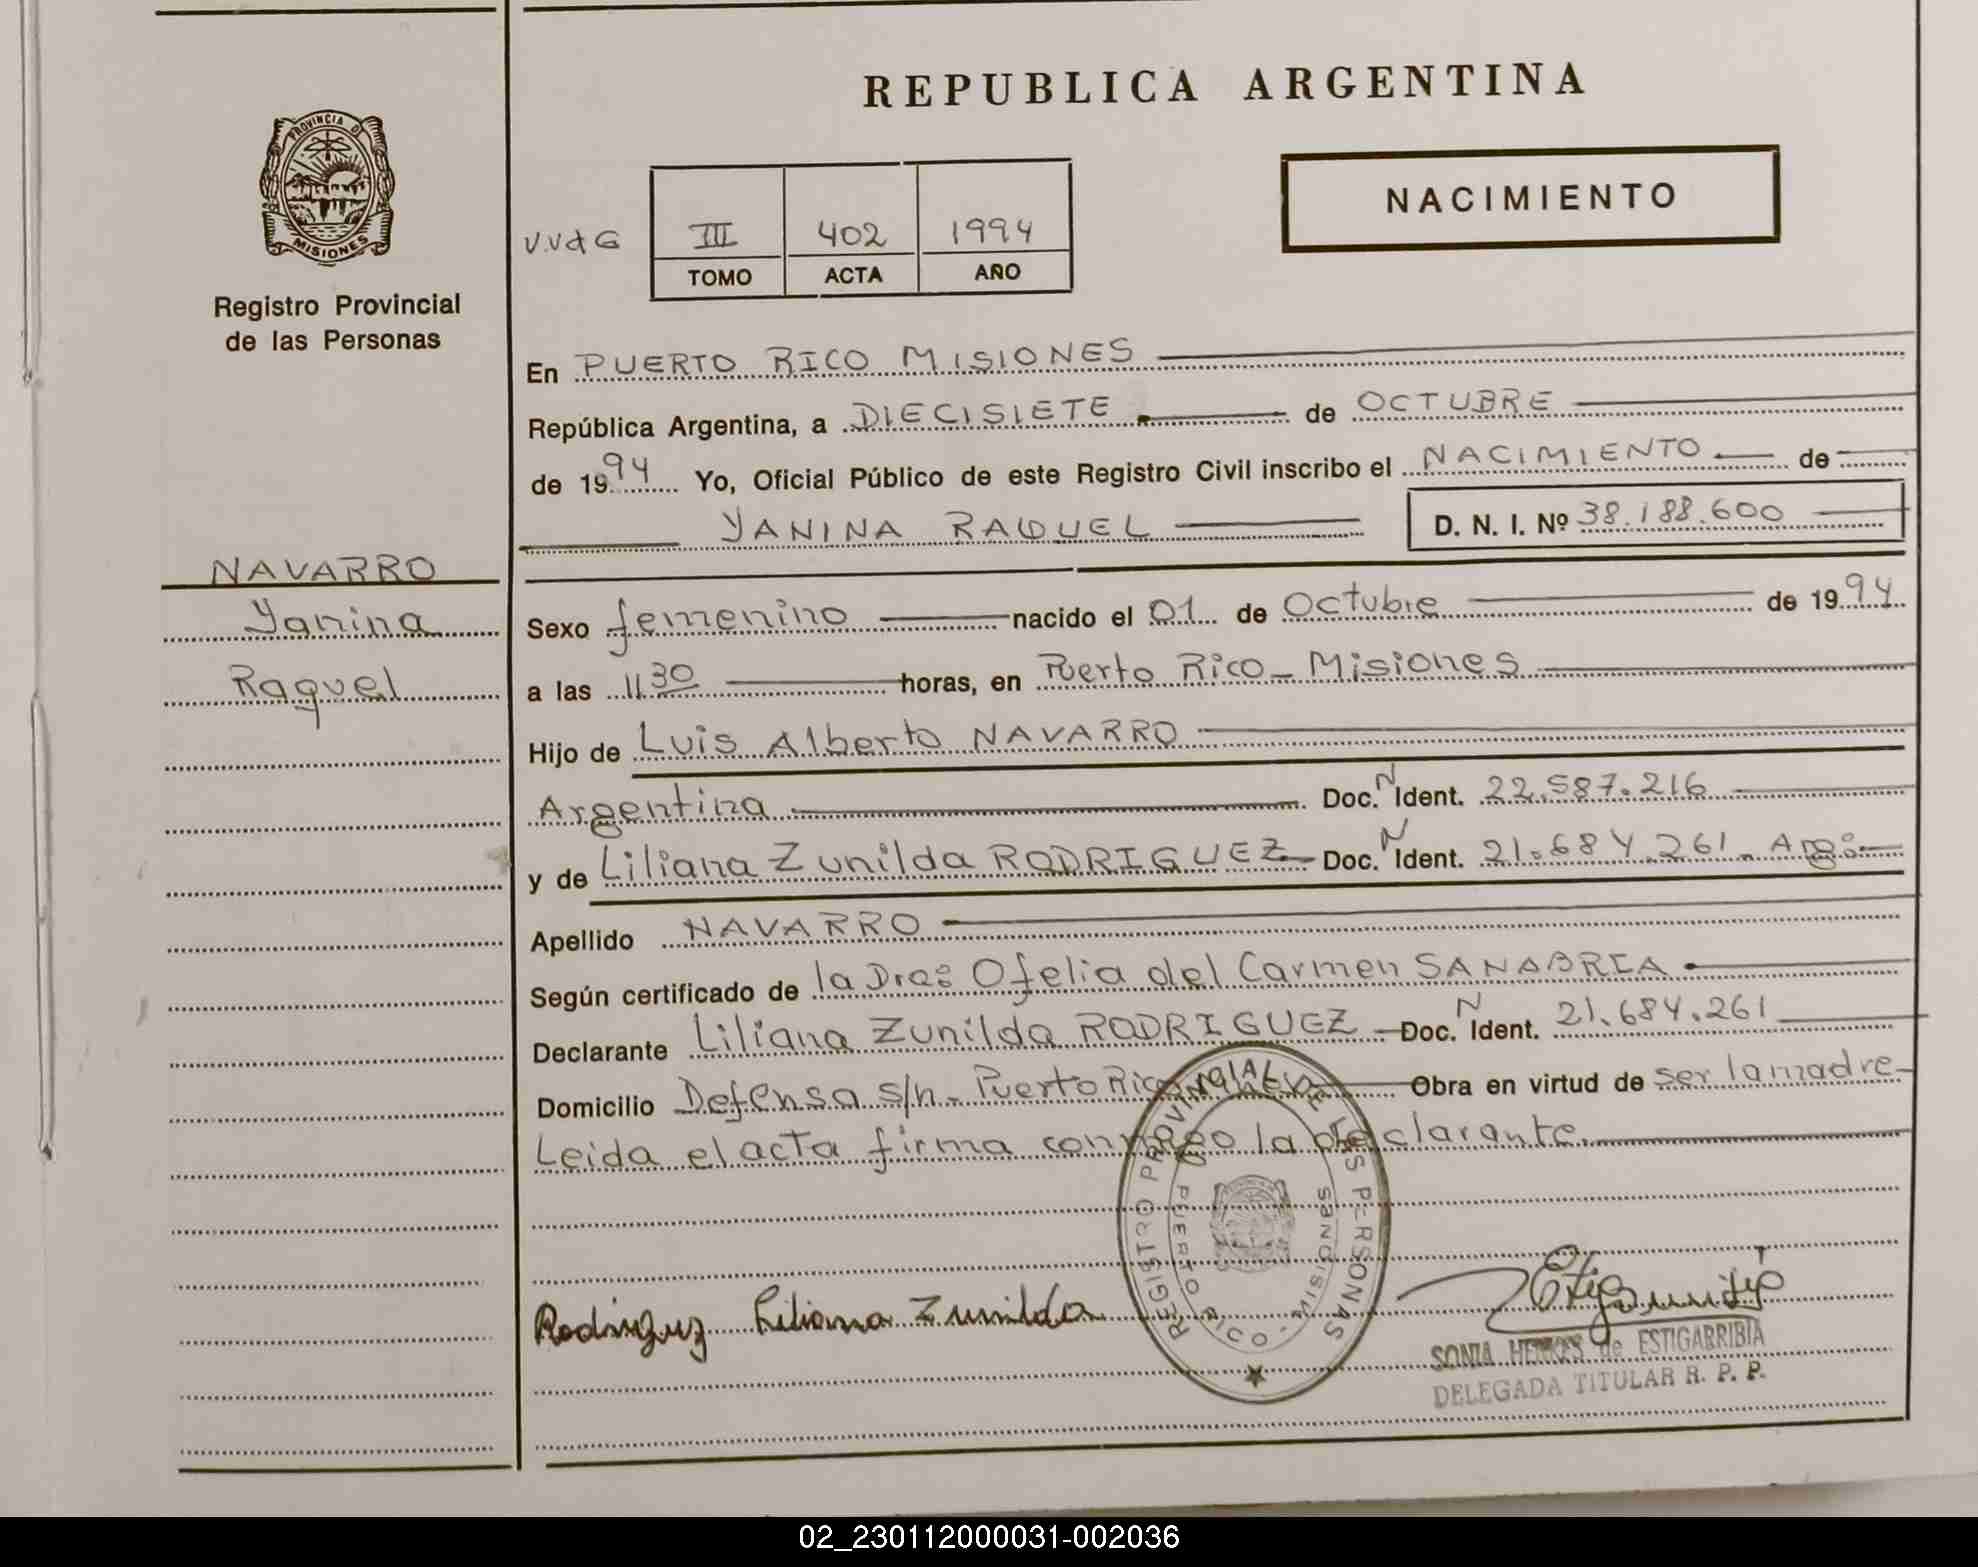 REPUBLICA ARGENTINA
PROVINCIA DE
MISIONES
Registro Provincial
de las Personas
NACIMIENTO
V.V d G
III 402 1994
TOMO ACTA AÑO
En PUERTO RICO MISIONES
República Argentina, a DIECISIETE de OCTUBRE
de 1994 Yo, Oficial Público de este Registro Civil inscribo el NACIMIENTO de
YANINA RAQUEL D. N. I. Nº 38.188.600
NAVARRO
Yanina
Raquel
Sexo femenino nacido el 01 de Octubre de 1994
a las 11 30 horas, en Puerto Rico - Misiones
Hijo de Luis Alberto NAVARRO
Argentina Doc. N Ident. 22.587.216
y de Liliana Zunilda RODRIGUEZ Doc. N Ident. 21.684.261. Arg:
Apellido NAVARRO
Según certificado de la Dra: Ofelia del Carmen SANABRIA
Declarante Liliana Zunilda RODRIGUEZ Doc. N Ident. 21.684.261
Domicilio Defensa s/n - Puerto Rico Obra en virtud de ser la madre
Leida el acta firma conmigo la declarante
REGISTRO PROVINCIAL DE LAS PERSONAS
PUERTO RICO - MISIONES
Rodriguez Liliana Zunilda
SONIA de ESTIGARRIBIA
DELEGADA TITULAR R. P. P.
02_230112000031-002036